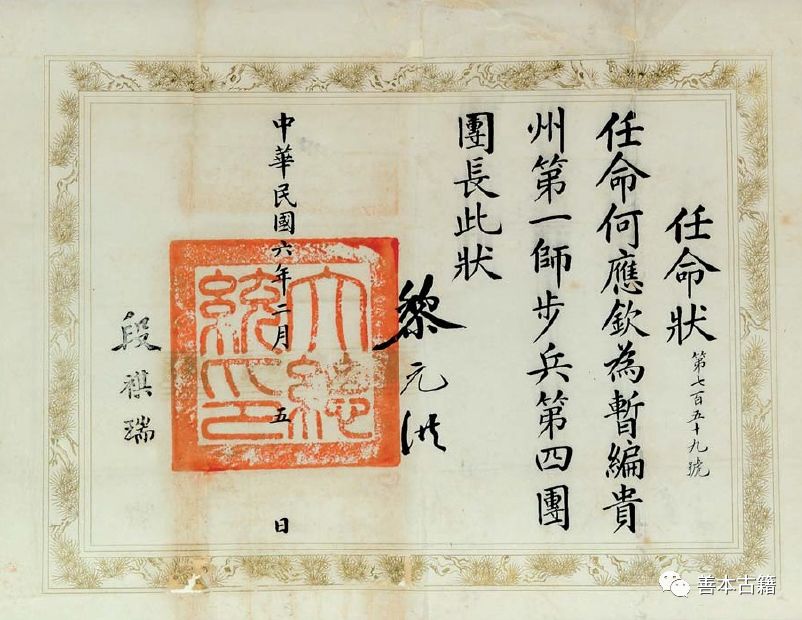 任命狀
第七百五十九號
任命何應欽為暫編貴
州第一師步兵第四團
團長此狀
黎元洪
大總統印
中華民國六年二月五日
段祺瑞
善本古籍